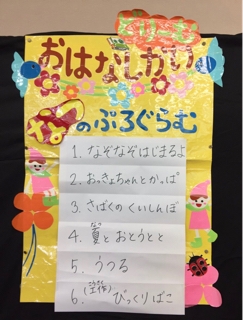 おはなしかい
のぷろぐらむ
1. なぞなぞはじまるよ
2. おっきょちゃんとかっぱ
3. さばくのくいしんぼ
4. 夏とおとうとと
なつ
5. うつる
6. (工作) びっくりばこ
こうさく